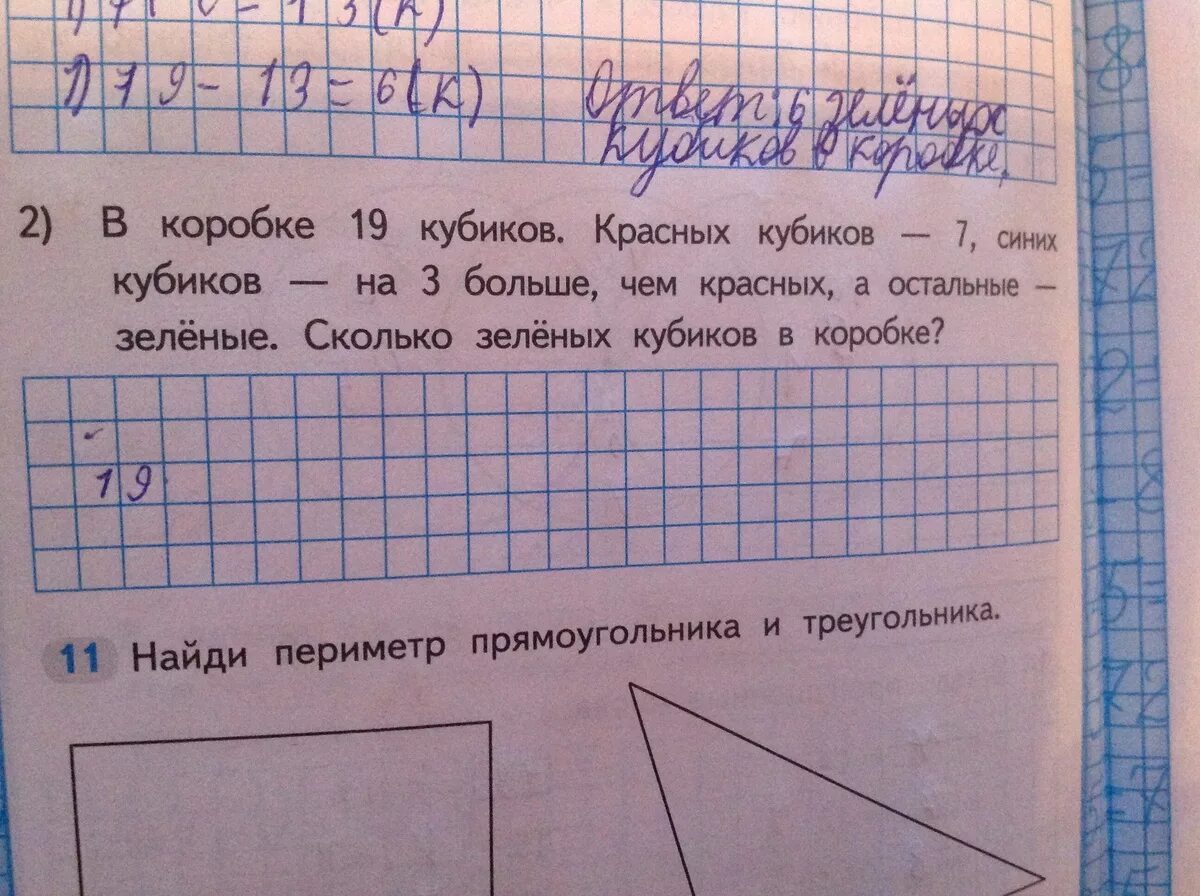 1) 7 - 13(к)
1) 19 - 13 = 6(к) Ответ: 6 зелёных
кубиков в коробке.
2) В коробке 19 кубиков. Красных кубиков — 7, синих
кубиков — на 3 больше, чем красных, а остальные —
зелёные. Сколько зелёных кубиков в коробке?
19
11 Найди периметр прямоугольника и треугольника.